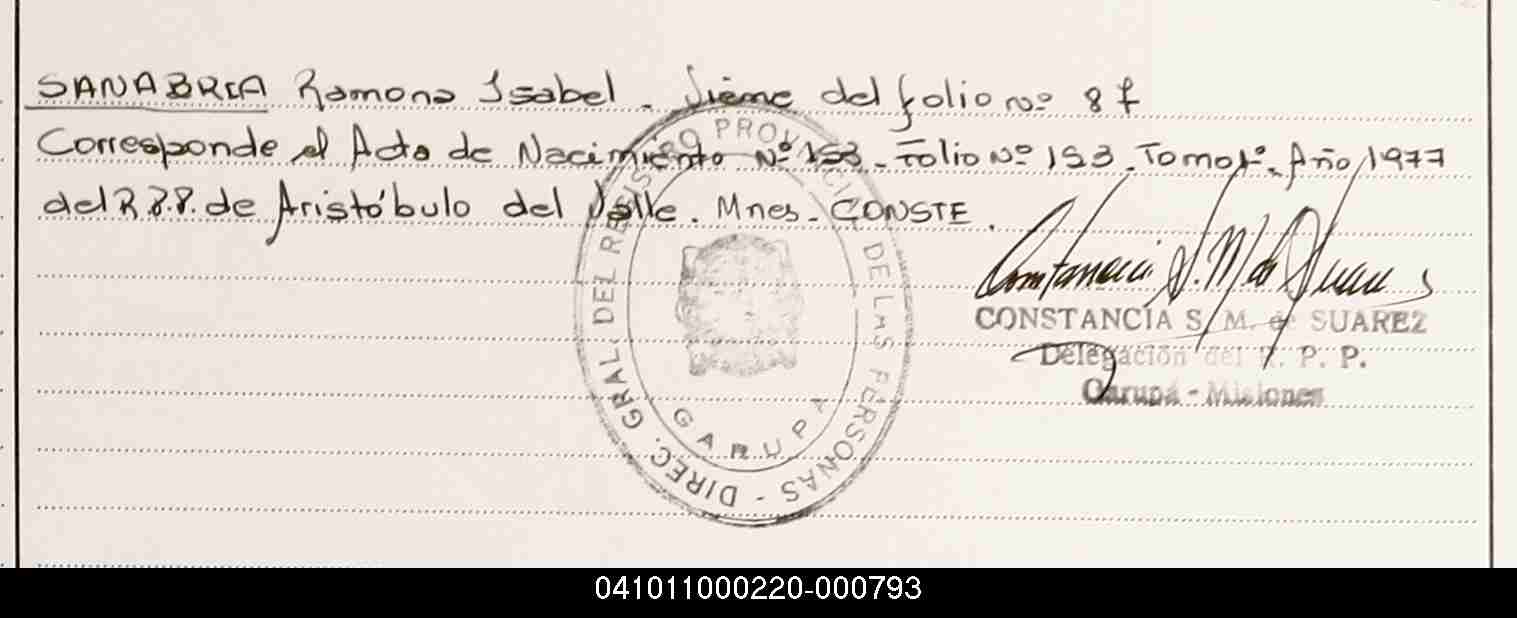 SANABRIA Ramona Isabel. Viene del folio nº 8 f
Corresponde al Acta de Nacimiento Nº 153 - Folio Nº 153. Tomo 1º. Año 1977
del R.P.P. de Aristóbulo del Valle. Mnes. CONSTE.
DIREC. GRAL. DEL REGISTRO PROVINCIAL DE LAS PERSONAS -
GARUPA
Constancia S. M. de Suarez
CONSTANCIA S. M. de SUAREZ
Delegación del R. P. P.
Garupá - Misiones
041011000220-000793